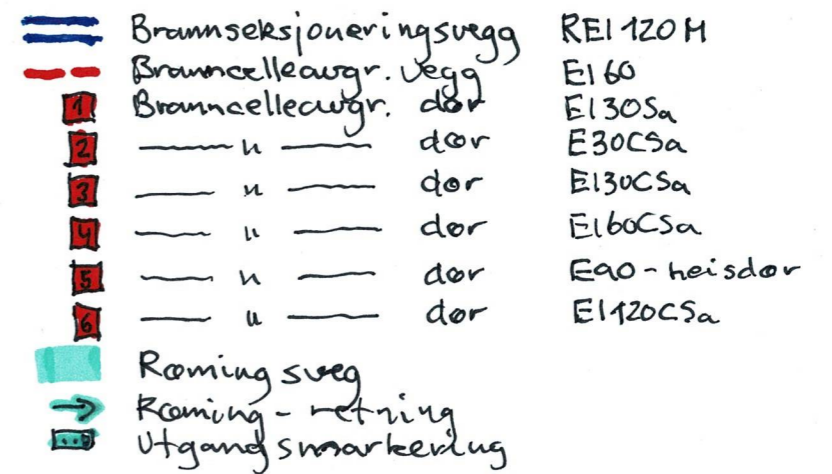 Brannseksjoneringsvegg REI 120 M
Branncelleavgr. vegg EI 60
1 Branncelleavgr. dør EI30Sa
2 — " — dør E30CSa
3 — " — dør EI30CSa
4 — " — dør EI60CSa
5 — " — dør E90 - heisdør
6 — " — dør EI120CSa
Rømingsveg
Røming - retning
Utgangsmarkering